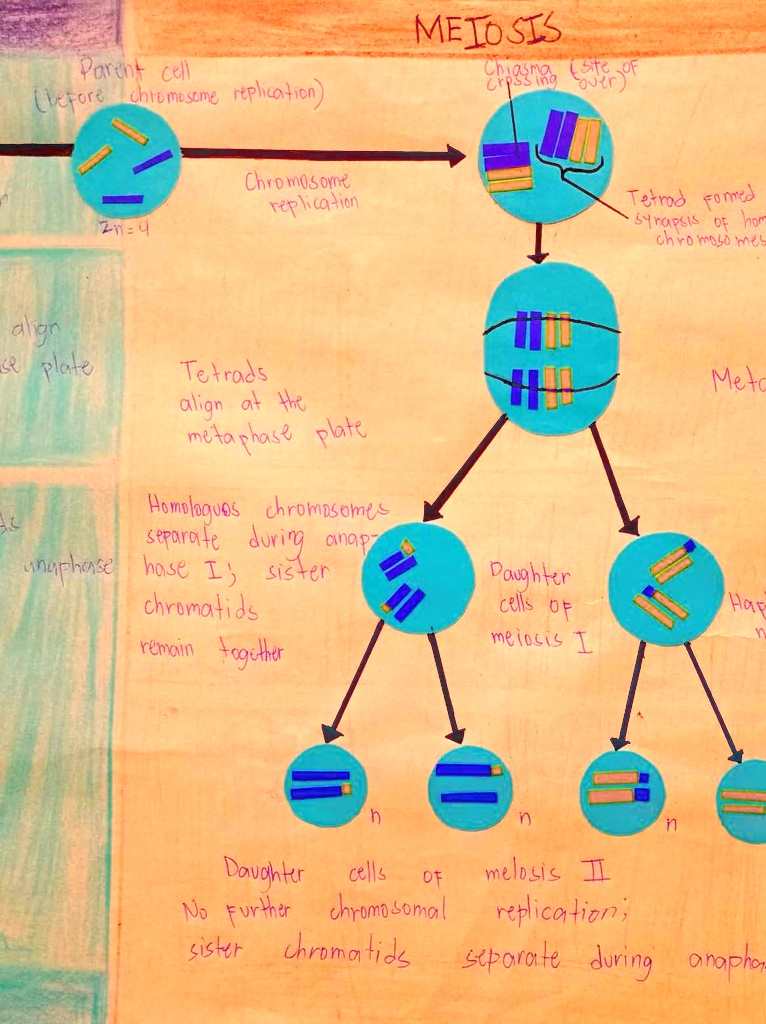 MEIOSIS
Parent cell
(before chromosome replication)
2n=4
Chromosome
replication
Chiasma (site of
crossing over)
Tetrad formed
synapsis of hom
chromosomes
align
plate
Tetrads
align at the
metaphase plate
Meta
Homologuos chromosomes
separate during anap-
hase I; sister
chromatids
remain together
anaphase
Daughter
cells of
meiosis I
Hap
n
n
n
n
Daughter cells of meiosis II
No further chromosomal replication;
sister chromatids separate during anapha